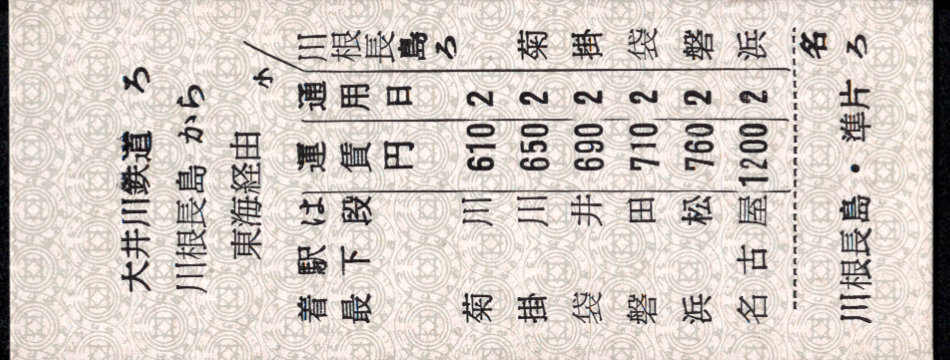 大井川鉄道 ろ
川根長島から
東海経由 小
着駅は 運 通 川
最下段 賃 用 根
円 日 長
島ろ
菊川 610 2
掛川 650 2 菊
袋井 690 2 掛
磐田 710 2 袋
浜松 760 2 磐
名古屋 1200 2 浜
名
川根長島・準片 ろ